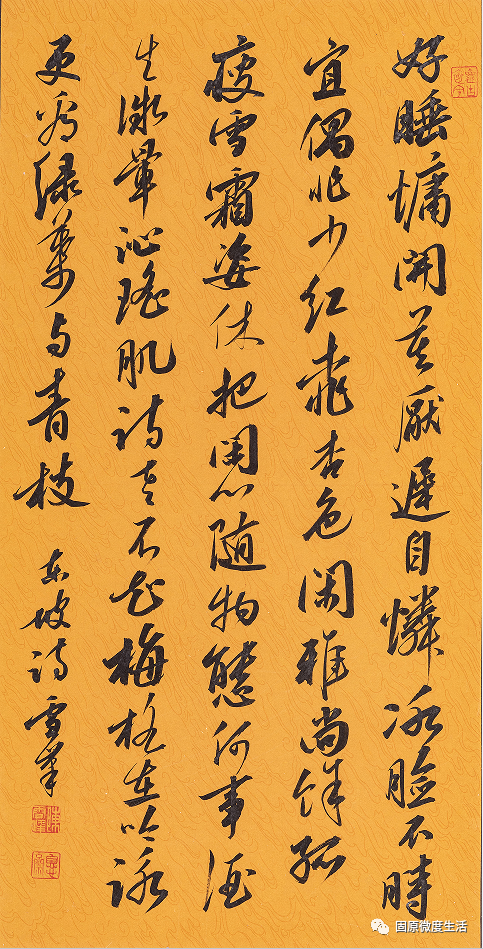 好睡慵開莫厭遲自憐冰臉不時
宜偶作小红桃杏色闲雅尚馀孤
瘦雪霜姿休把闲心随物態何事酒
生微暈沁瑶肌诗老不知梅格在吟詠
更看绿葉与青枝
东坡诗 雪
固原微度生活